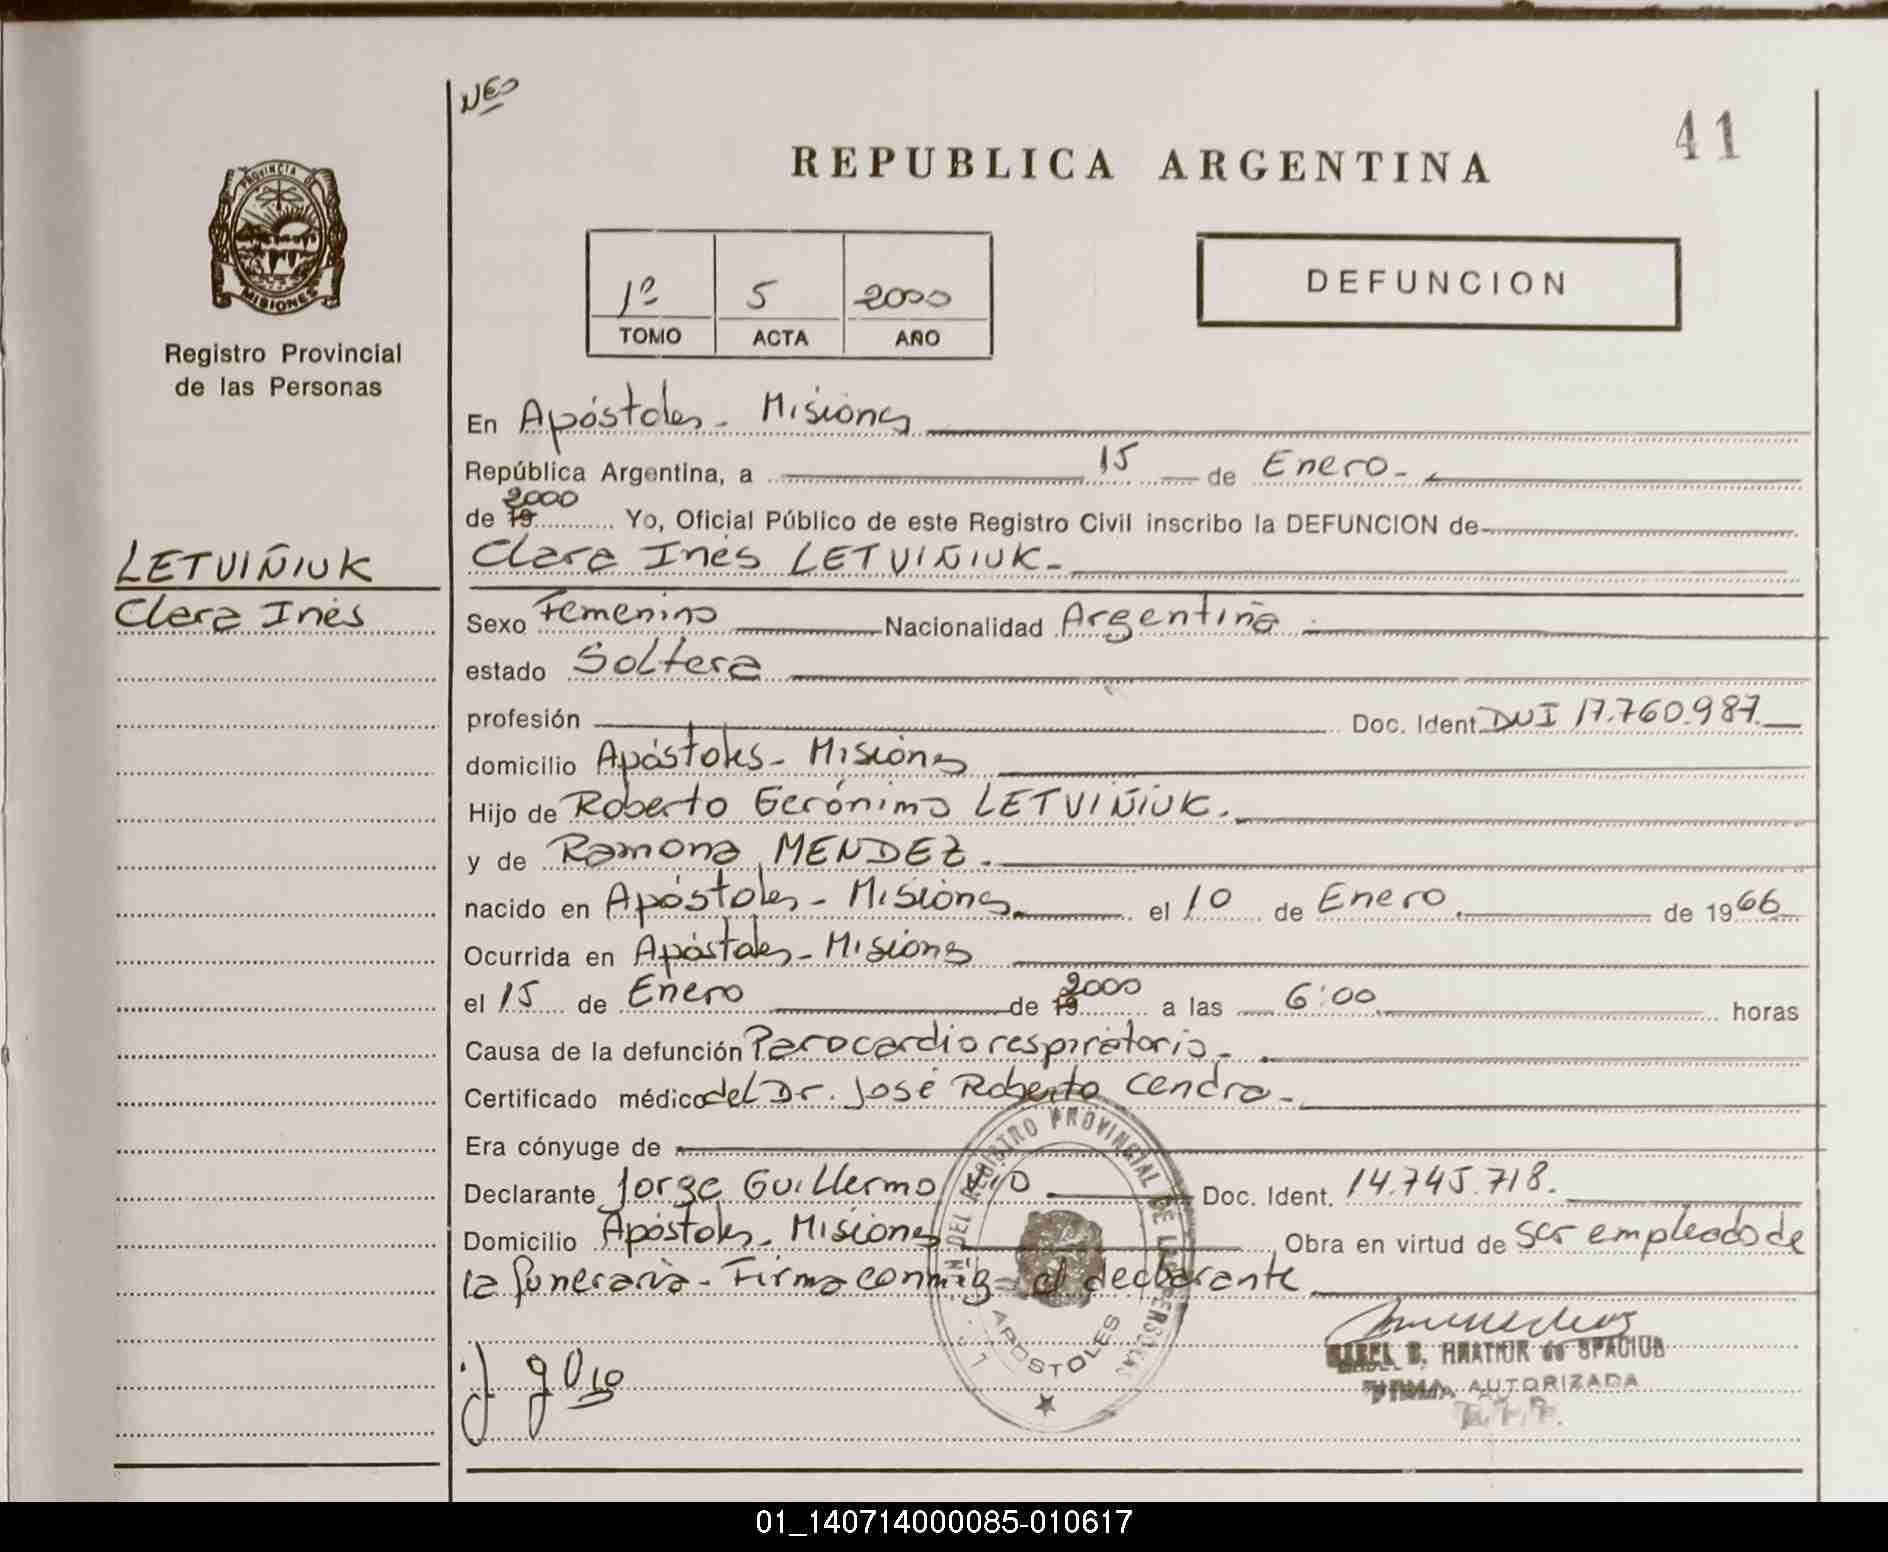 NEO
41
REPUBLICA ARGENTINA
PROVINCIA DE
MISIONES
Registro Provincial
de las Personas
1º 5 2000
TOMO ACTA AÑO
DEFUNCION
En Apóstoles - Misiones
República Argentina, a 15 de Enero.-
de 19 2000 Yo, Oficial Público de este Registro Civil inscribo la DEFUNCION de
LETVIÑIUK
Clara Inés
Clara Inés LETVIÑIUK.-
Sexo Femenino Nacionalidad Argentina
estado Soltera
profesión Doc. Ident. DNI 17.760.987.
domicilio Apóstoles - Misiones
Hijo de Roberto Gerónimo LETVIÑIUK.
y de Ramona MENDEZ.
nacido en Apóstoles - Misiones el 10 de Enero de 1966
Ocurrida en Apóstoles - Misiones
el 15 de Enero de 19 2000 a las 6:00 horas
Causa de la defunción Parocardiorespiratorio.-
Certificado médico del Dr. José Roberto Cendra.-
Era cónyuge de
Declarante Jorge Guillermo Doc. Ident. 14.745.718.
Domicilio Apóstoles - Misiones Obra en virtud de ser empleado de
la funeraria - Firma conmigo el declarante
DEL REGISTRO PROVINCIAL DE LAS PERSONAS
APOSTOLES
de SPACIUK
FIRMA AUTORIZADA
01_140714000085-010617